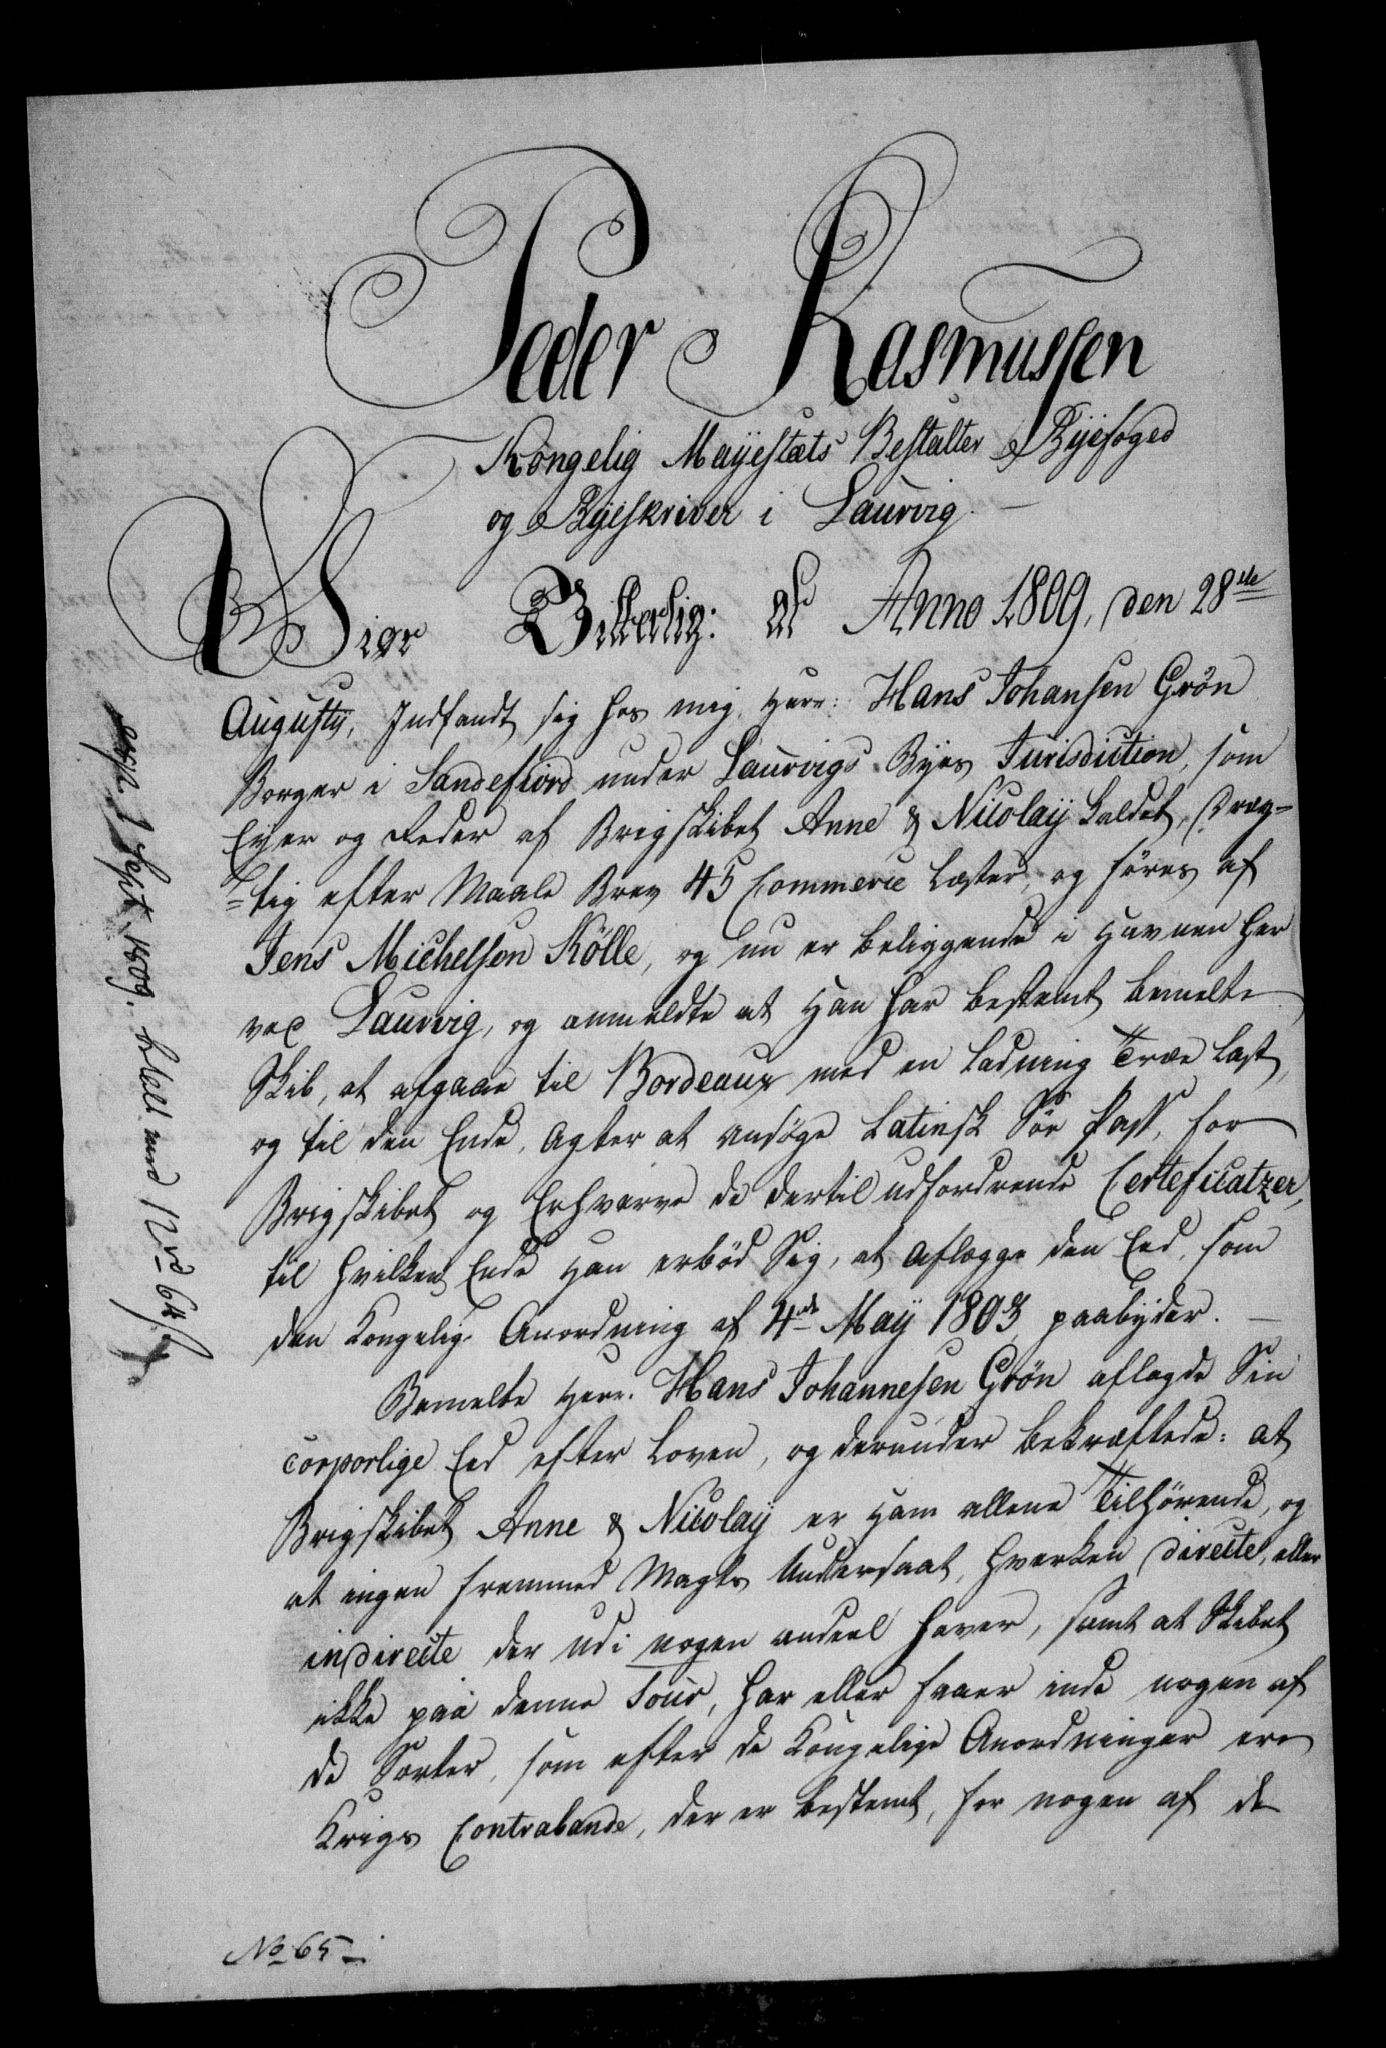 Peder Rasmussen
Kongelig Mayestæts Bestalter Byefoged
og Byeskriver i Laurvig.
Giør Vitterlig: at Anno 1809, den 28de
Augusty, Indfandt sig hos mig Herr: Hans Johansen Grön
Borger i Sandefiord under Laurvigs Byes Jurisdiction, som
Eyer og Reder af Brigskibet Anne & Nicolaÿ kaldet, Dræg-
tig efter Maale Brev 45 Commerce Læster, og föres af
Jens Michelsen Kölle, og nu er beliggende i Havnen her
ved Laurvig, og anmeldte at Han har bestemt bemelte
Skib, at afgaae til Bordeaux med en ladning Træe Last,
og til den Ende, agter at ansöge Latinsk Söe Pass, for
Brigskibet og Erhverve de dertil udfordrende Certeficatzer,
til hvilken Ende Han erböd Sig, at aflægge den Eed, som
den Kongelig Anordning af 4de Maÿ 1803 paabyder. —
Bemelte Herr. Hans Johannesen Grön aflagde Sin
corporlige Eed efter Loven, og derunder bekræftede: at
Brigskibet Anne & Nicolaÿ er Ham allene Tilhörende, og
at ingen fremmed Magts Undersaat, hverken directe, eller
indirecte der udi nogen andeel haver, samt at Skibet
ikke paa denne Tour, har eller faaer inde nogen af
de Sorter, som efter de Kongelige Anordninger ere
Krigs Contrabande, der er bestemt, for nogen af de
No 65
Sept. 1809. betalt med 12rd 64s